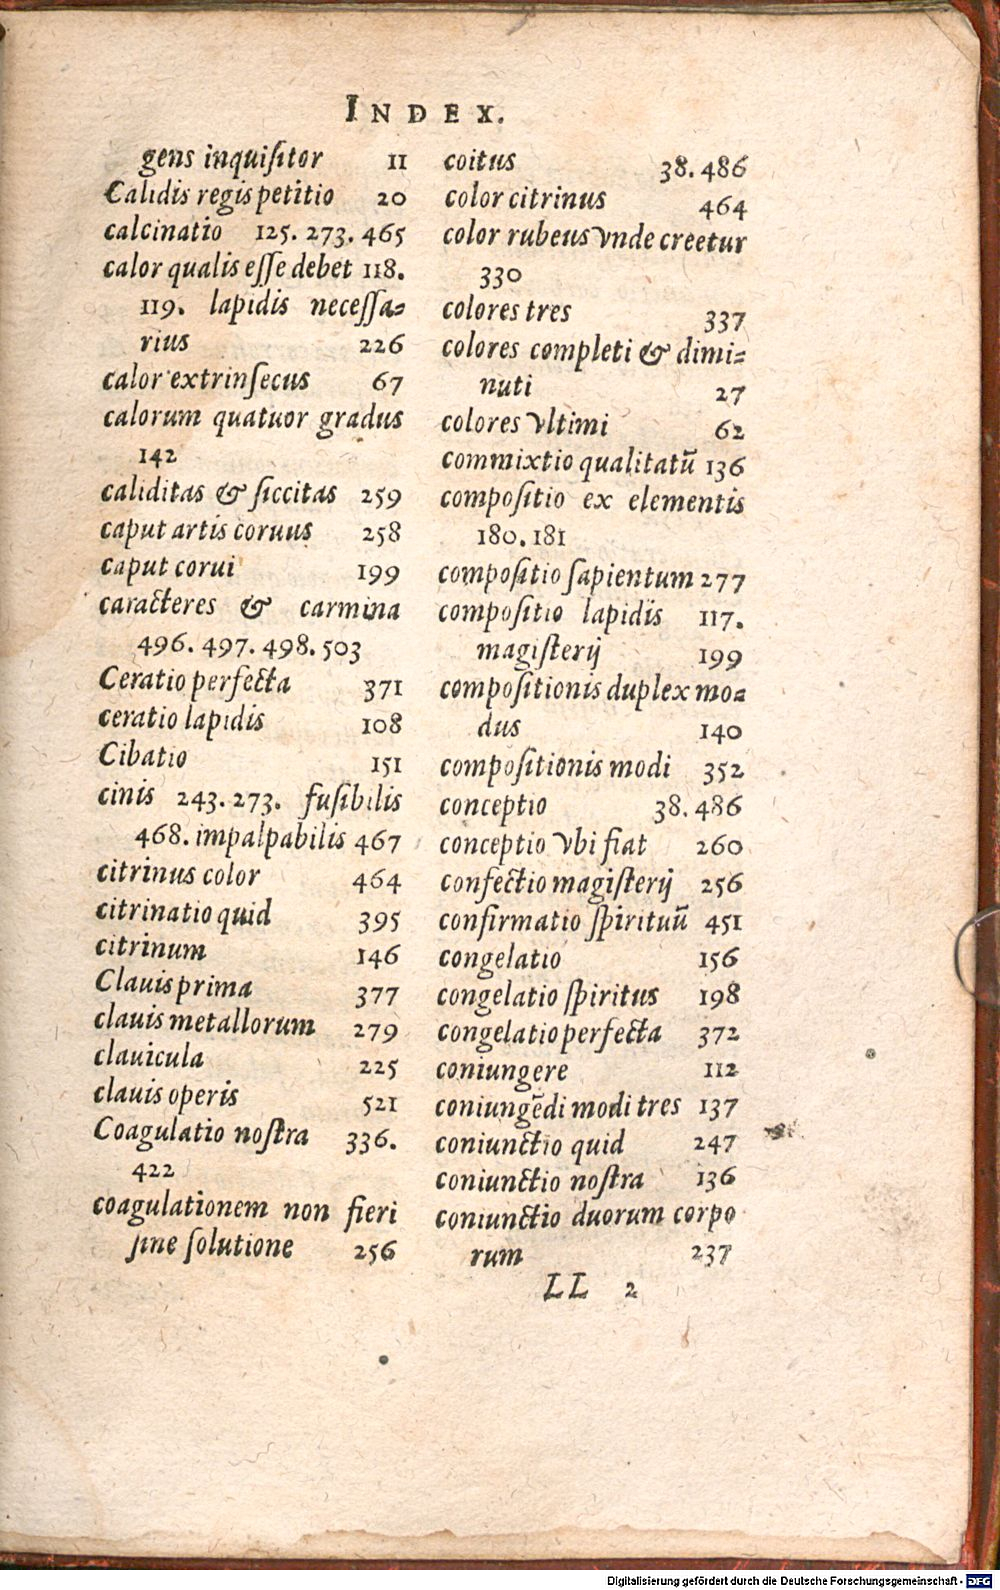 INDEX.
gens inquiſitor 11
Calidis regis petitio 20
calcinatio 125. 273. 465
calor qualis eſſe debet 118.
119. lapidis neceſſa-
rius 226
calor extrinſecus 67
calorum quatuor gradus
142
caliditas & ſiccitas 259
caput artis coruus 258
caput corui 199
caracteres & carmina
496. 497. 498. 503
Ceratio perfecta 371
ceratio lapidis 108
Cibatio 151
cinis 243. 273. fuſibilis
468. impalpabilis 467
citrinus color 464
citrinatio quid 395
citrinum 146
Clauis prima 377
clauis metallorum 279
clauicula 225
clauis operis 521
Coagulatio noſtra 336.
422
coagulationem non fieri
ſine ſolutione 256
coitus 38. 486
color citrinus 464
color rubeus vnde creetur
330
colores tres 337
colores completi & dimi-
nuti 27
colores vltimi 62
commixtio qualitatū 136
compoſitio ex elementis
180. 181
compoſitio ſapientum 277
compoſitio lapidis 117.
magiſterij 199
compoſitionis duplex mo-
dus 140
compoſitionis modi 352
conceptio 38. 486
conceptio vbi fiat 260
confectio magiſterij 256
confirmatio ſpirituū 451
congelatio 156
congelatio ſpiritus 198
congelatio perfecta 372
coniungere 112
coniungēdi modi tres 137
coniunctio quid 247
coniunctio noſtra 136
coniunctio duorum corpo
rum 237
LL 2
Digitalisierung gefördert durch die Deutsche Forschungsgemeinschaft - DFG